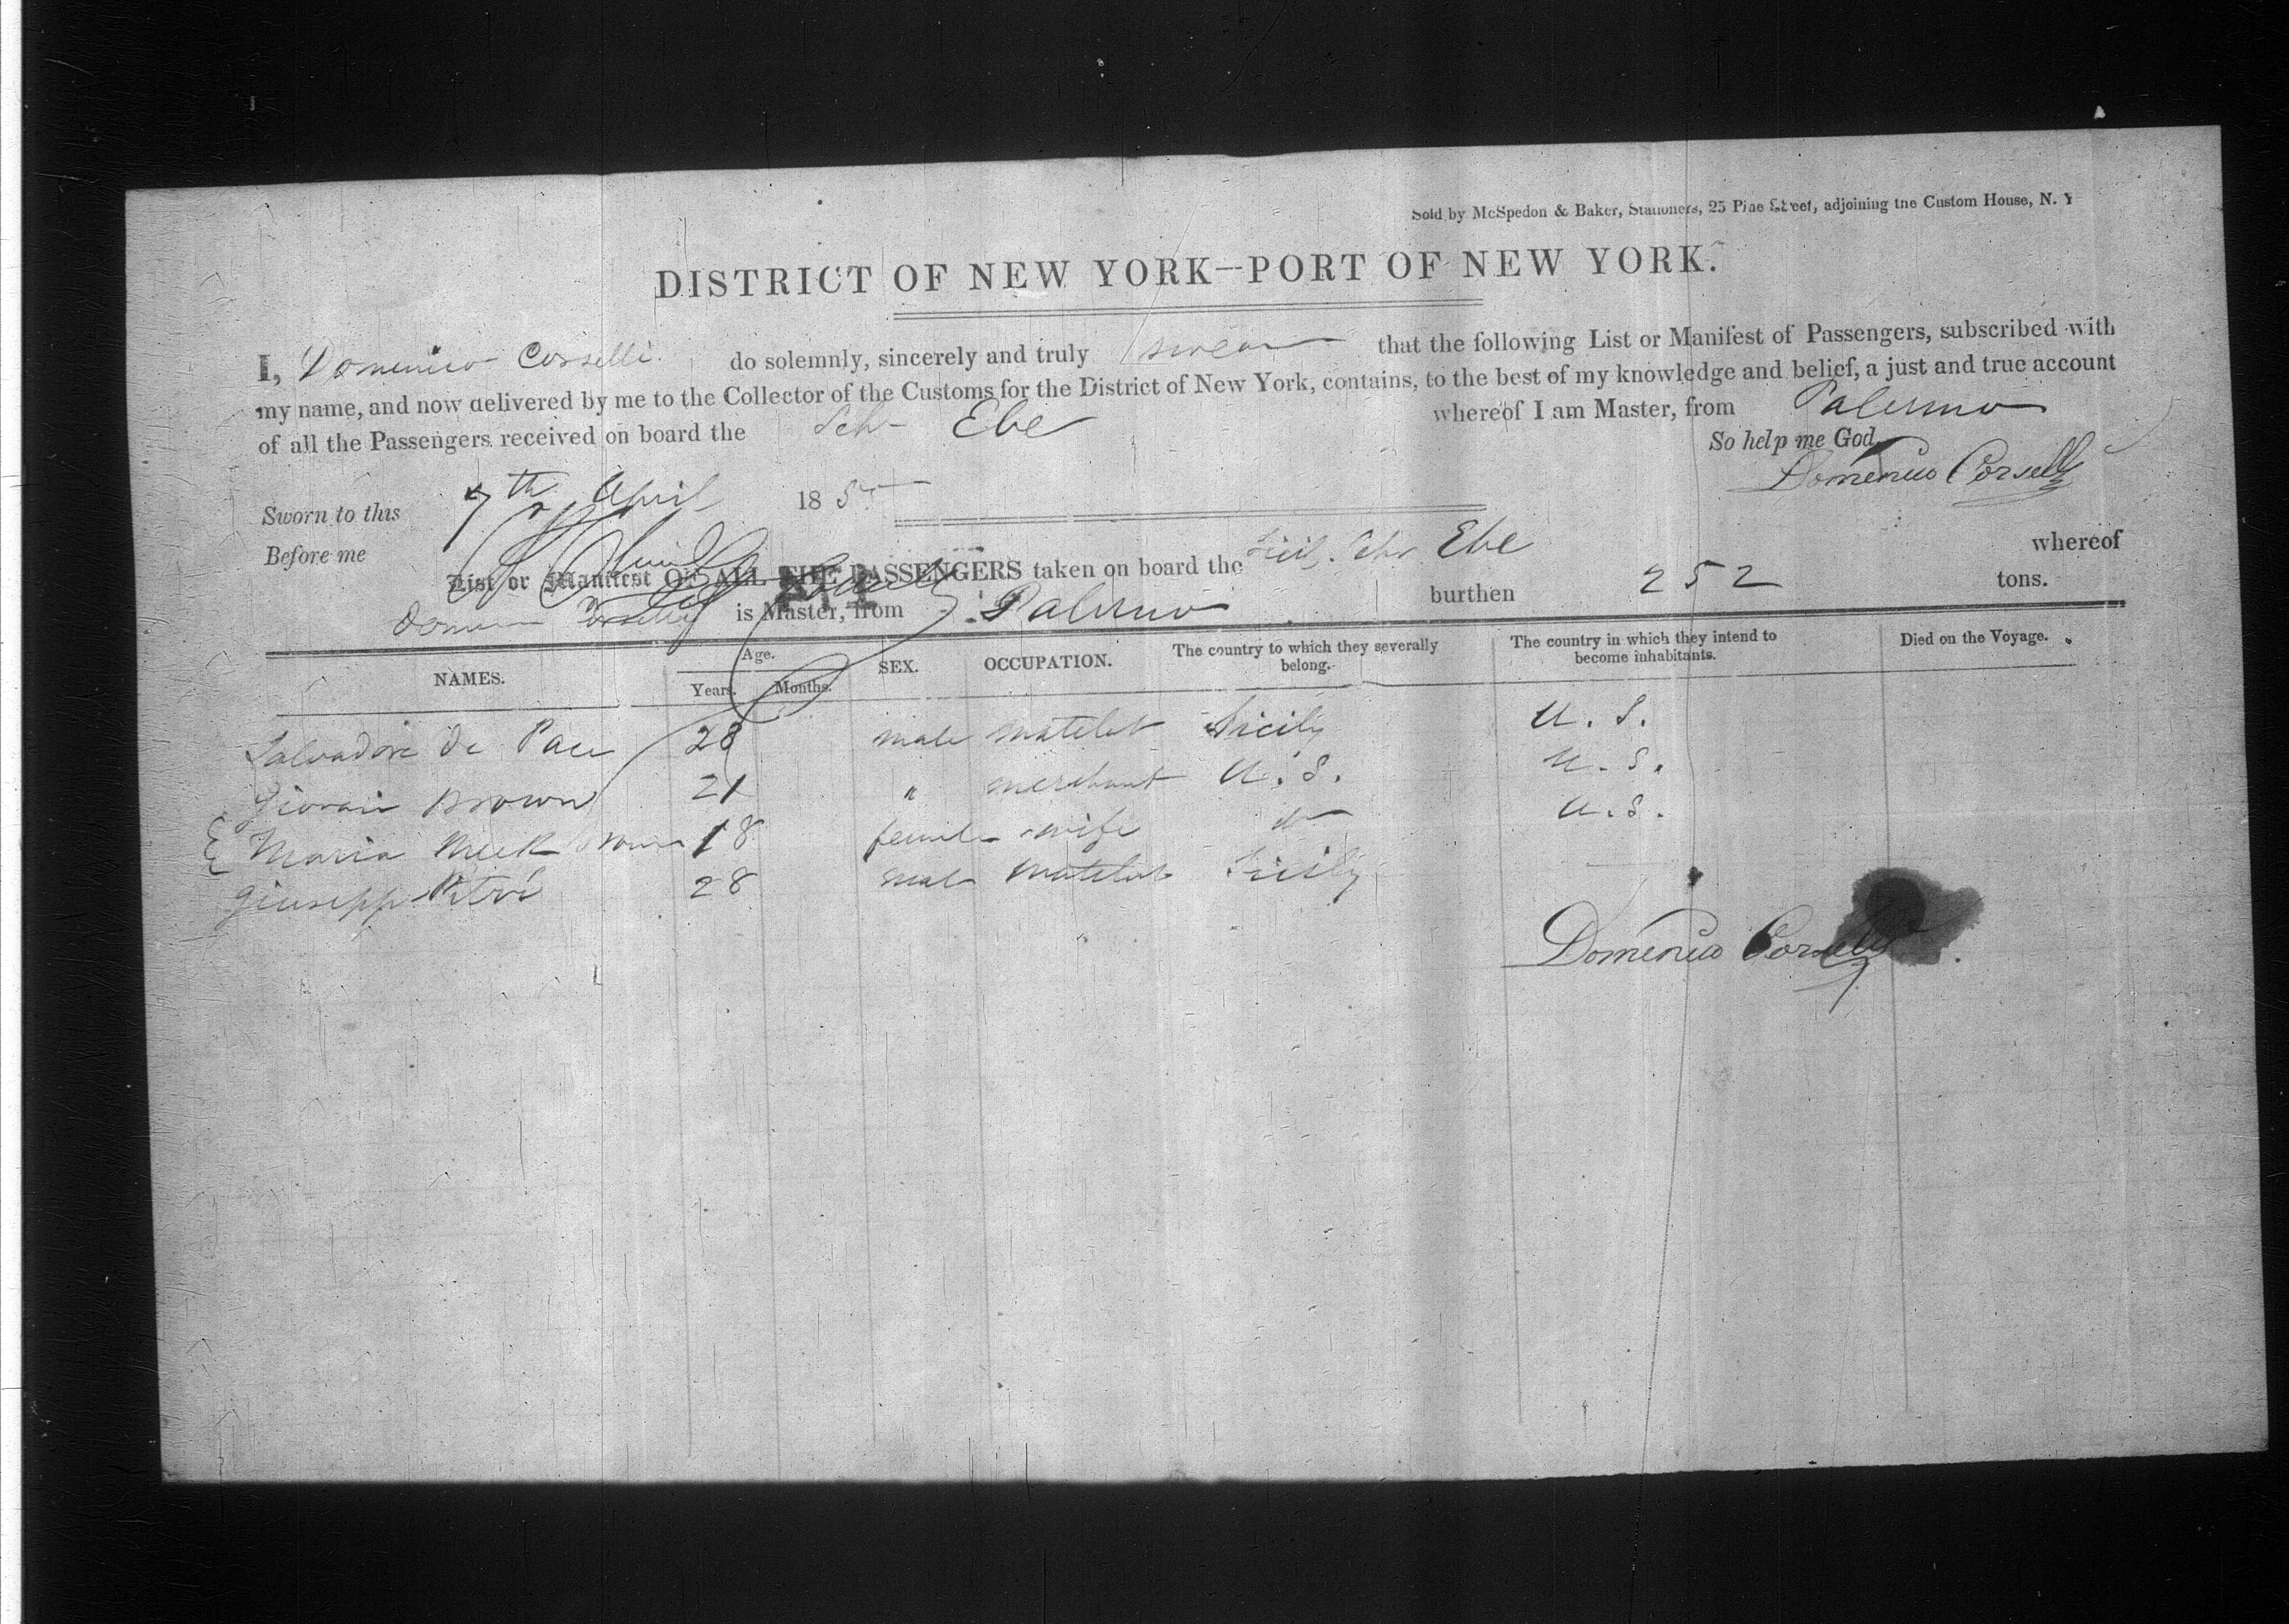 Sold by McSpedon & Baker, Stationers, 25 Pine Street, adjoining the Custom House, N. Y
DISTRICT OF NEW YORK—PORT OF NEW YORK.
I, Domenico Corselli do solemnly, sincerely and truly swear that the following List or Manifest of Passengers, subscribed with
my name, and now delivered by me to the Collector of the Customs for the District of New York, contains, to the best of my knowledge and belief, a just and true account
of all the Passengers received on board the Schr Ebe whereof I am Master, from Palermo
So help me God.
Domenico Corselli
Sworn to this 7th April 185
Before me
List or Manifest OF ALL THE PASSENGERS taken on board the Sicil. Schr Ebe whereof
Domenico Corselli is Master, from Palermo burthen 252 tons.
NAMES. Age. Years. Months. SEX. OCCUPATION. The country to which they severally belong. The country in which they intend to become inhabitants. Died on the Voyage.
Salvadore De Pace 28 male matelot Sicily U. S.
Giovani Brown 21 " merchant U. S. U. S.
Maria Brown 18 female wife do U. S.
Giuseppe Pitrè 28 male matelot Sicily
Domenico Corselli